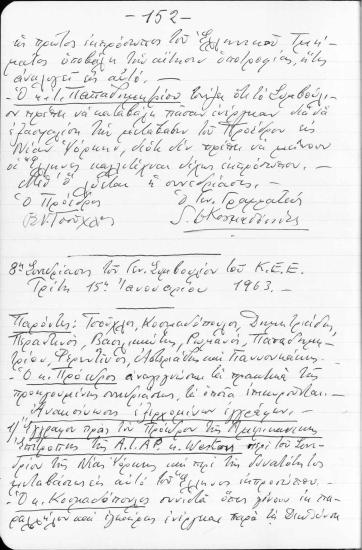 -152-
ὡς πρῶτος ἐκπρόσωπος τοῦ Ἑλληνικοῦ Τμή-
ματος ὑποβάλῃ τὴν αἴτησιν ὑποτροφίας, ἥτις
ἀναλογεῖ εἰς αὐτό.-
-Ὁ κ. Ι. Παπαδημητρίου τονίζει ὅτι τὸ Συμβούλι-
ον πρέπει νὰ καταβάλῃ πᾶσαν ἐνέργειαν διὰ νὰ
ἐξασφαλίσῃ τὴν μετάβασιν τοῦ Προέδρου εἰς
Νέαν Ὑόρκην, διότι δὲν πρέπει νὰ μείνουν
οἱ Ἕλληνες καλλιτέχναι δίχως ἐκπρόσωπον.-
λύεται ἡ συνεδρίασις.-
Ὁ Πρόεδρος Ὁ Γεν. Γραμματεύς
8η Συνεδρίασις τοῦ Γεν. Συμβουλίου τοῦ Κ.Ε.Ε.
Τρίτη 15η Ἰανουαρίου 1963.-
Παρόντες: Τσοῦχλος, Κοσμαδόπουλος, Δημητριάδης,
Περαντινός, Βασιλικιώτης, Ρωμανός, Παπαδημη-
τρίου, Φλωρεντῖνος, Ἀστεριάδης καὶ Γιαννουκάκης.-
-Ὁ κ. Πρόεδρος ἀναγιγνώσκει τὰ πρακτικὰ τῆς
προηγουμένης συνεδριάσεως, τὰ ὁποῖα ἐπικυροῦνται.-
-Ἀνακοίνωσις ἐξερχομένων ἐγγράφων.-
1) Ἔγγραφον πρὸς τὸν Πρόεδρον τῆς Ἀμερικανικῆς
Ἐπιτροπῆς τῆς A.I.A.P. κ. Weston περὶ τοῦ Συνε-
δρίου τῆς Νέας Ὑόρκης καὶ περὶ τῆς δυνατότητος
μεταβάσεως εἰς αὐτὸ τοῦ Ἕλληνος ἐκπροσώπου.-
-Ὁ κ. Κοσμαδόπουλος συνιστᾷ ὅπως γίνουν ἐκ πα-
ραλλήλου καὶ ἐνέργειαι παρὰ τῇ Διευθύνσει